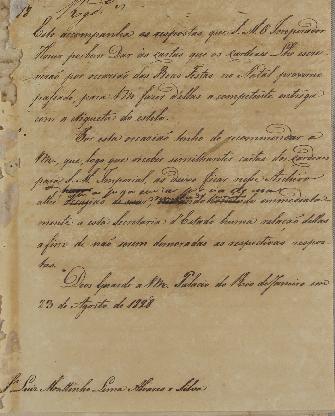 Este acompanha as respostas que S. M. O Imperador
Houve por bem Dar ás cartas que os Cardeaes Lhe escre
verão por occasião das Boas Festas no Natal proximo
passado, para V.M. fazer dellas a competente entrega
com a etiqueta do estilo.
Por esta occasião tenho de recommendar a
V.M. que, logo que receber semilhantes cartas de Cardeaes
para S. M. Imperial, as deve ficar nesse Archivo
immediata
mente a esta Secretaria d'Estado huma relação dellas
a fim de não serem demoradas as respectivas respos
tas.
Deos Guarde a V.M. Palacio do Rio de Janeiro em
23 de Agosto de 1828
Sr. Luiz Mouttinho Lima Alvares e Silva